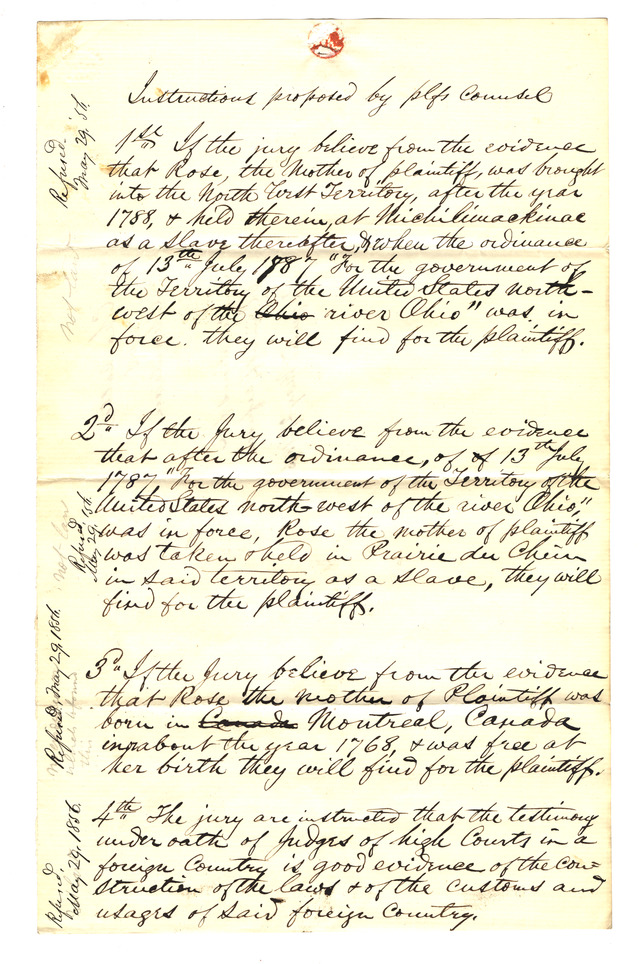 Instructions proposed by plfs Counsel
1st. If the jury believe from the evidence
that Rose, the Mother of plaintiff, was brought
into the North West Territory, after the year
1788, & held therein, at Michilimackinac
as a slave thereafter, & when the ordinance
of 13th July 1787, "For the government of
the Territory of the United States north-
west of the Ohio river Ohio" was in
force. they will find for the plaintiff.
Refused.
May 29. 56.
2d. If the Jury believe from the evidence
that after the ordinance, of of 13th July
1787, "For the government of the Territory of the
United States north-west of the river Ohio",
was in force, Rose the mother of plaintiff
was taken & held in Prairie du Chein
in said territory as a slave, they will
find for the plaintiff.
Refused,
May 29.
3d. If the Jury believe from the evidence
that Rose the mother of Plaintiff was
born in Canada Montreal, Canada
in about the year 1768, & was free at
her birth they will find for the plaintiff.
Refused, May 29, 1856.
4th. The jury are instructed that the testimony
under oath of Judges of high Courts in a
foreign Country is good evidence of the con-
struction of the laws & of the customs and
usages of said foreign Country.
Refused.
May 29. 1856.